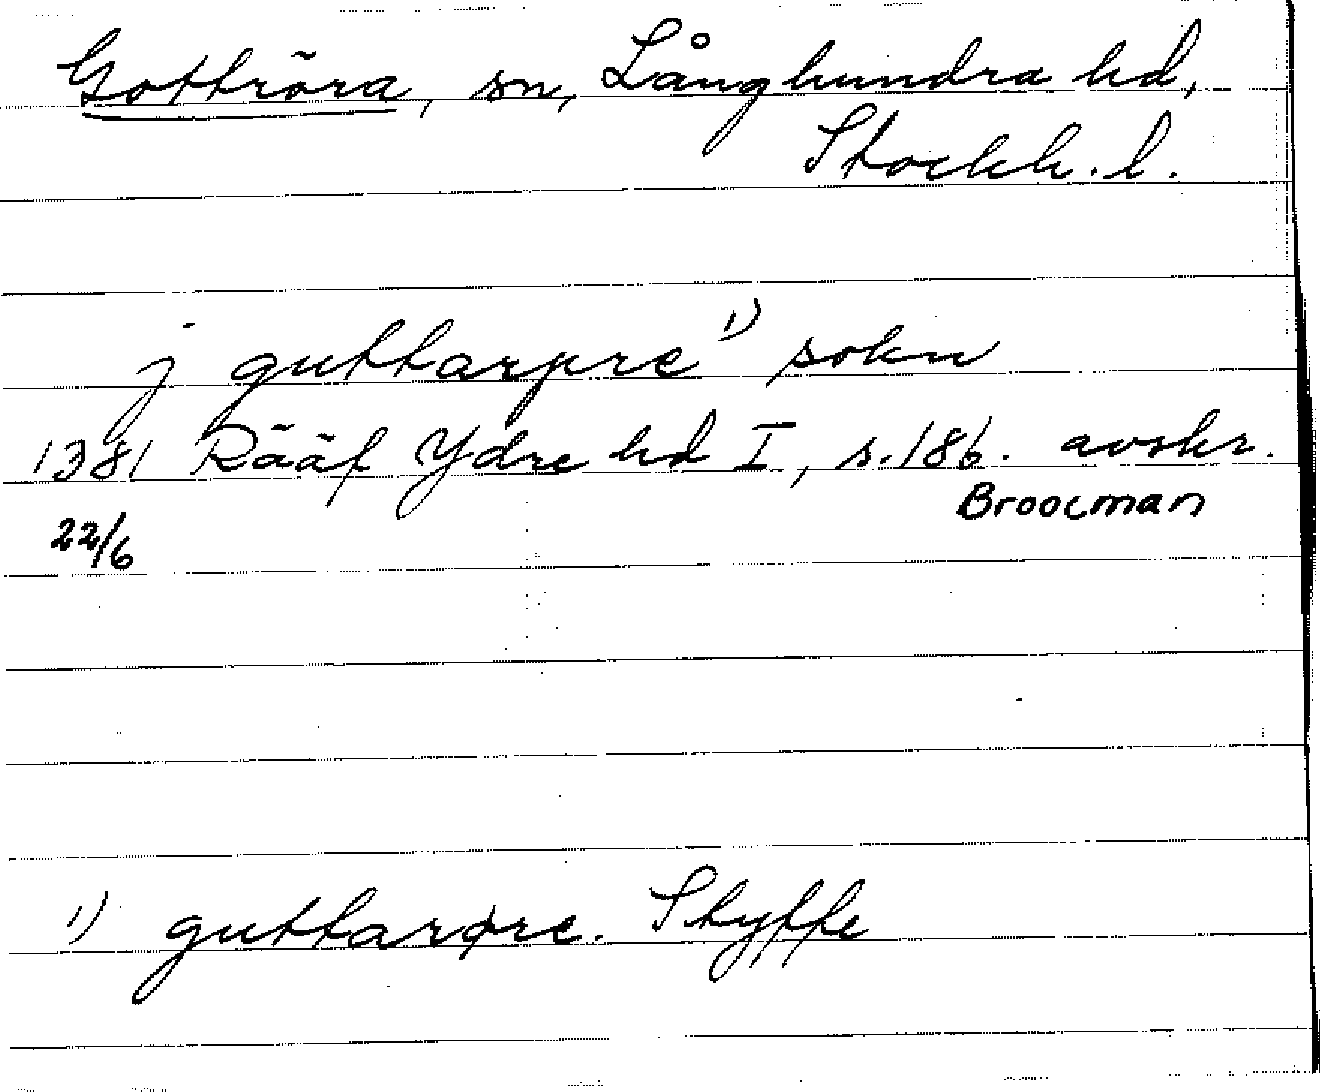 Gottröra, sn, Långhundra hd,
Stockh. l.
j guttarpre 1) sokn
1381 Rääf Ydre hd I, s. 186. avskr.
Broocman
22/6
1) guttarøre. Styffe